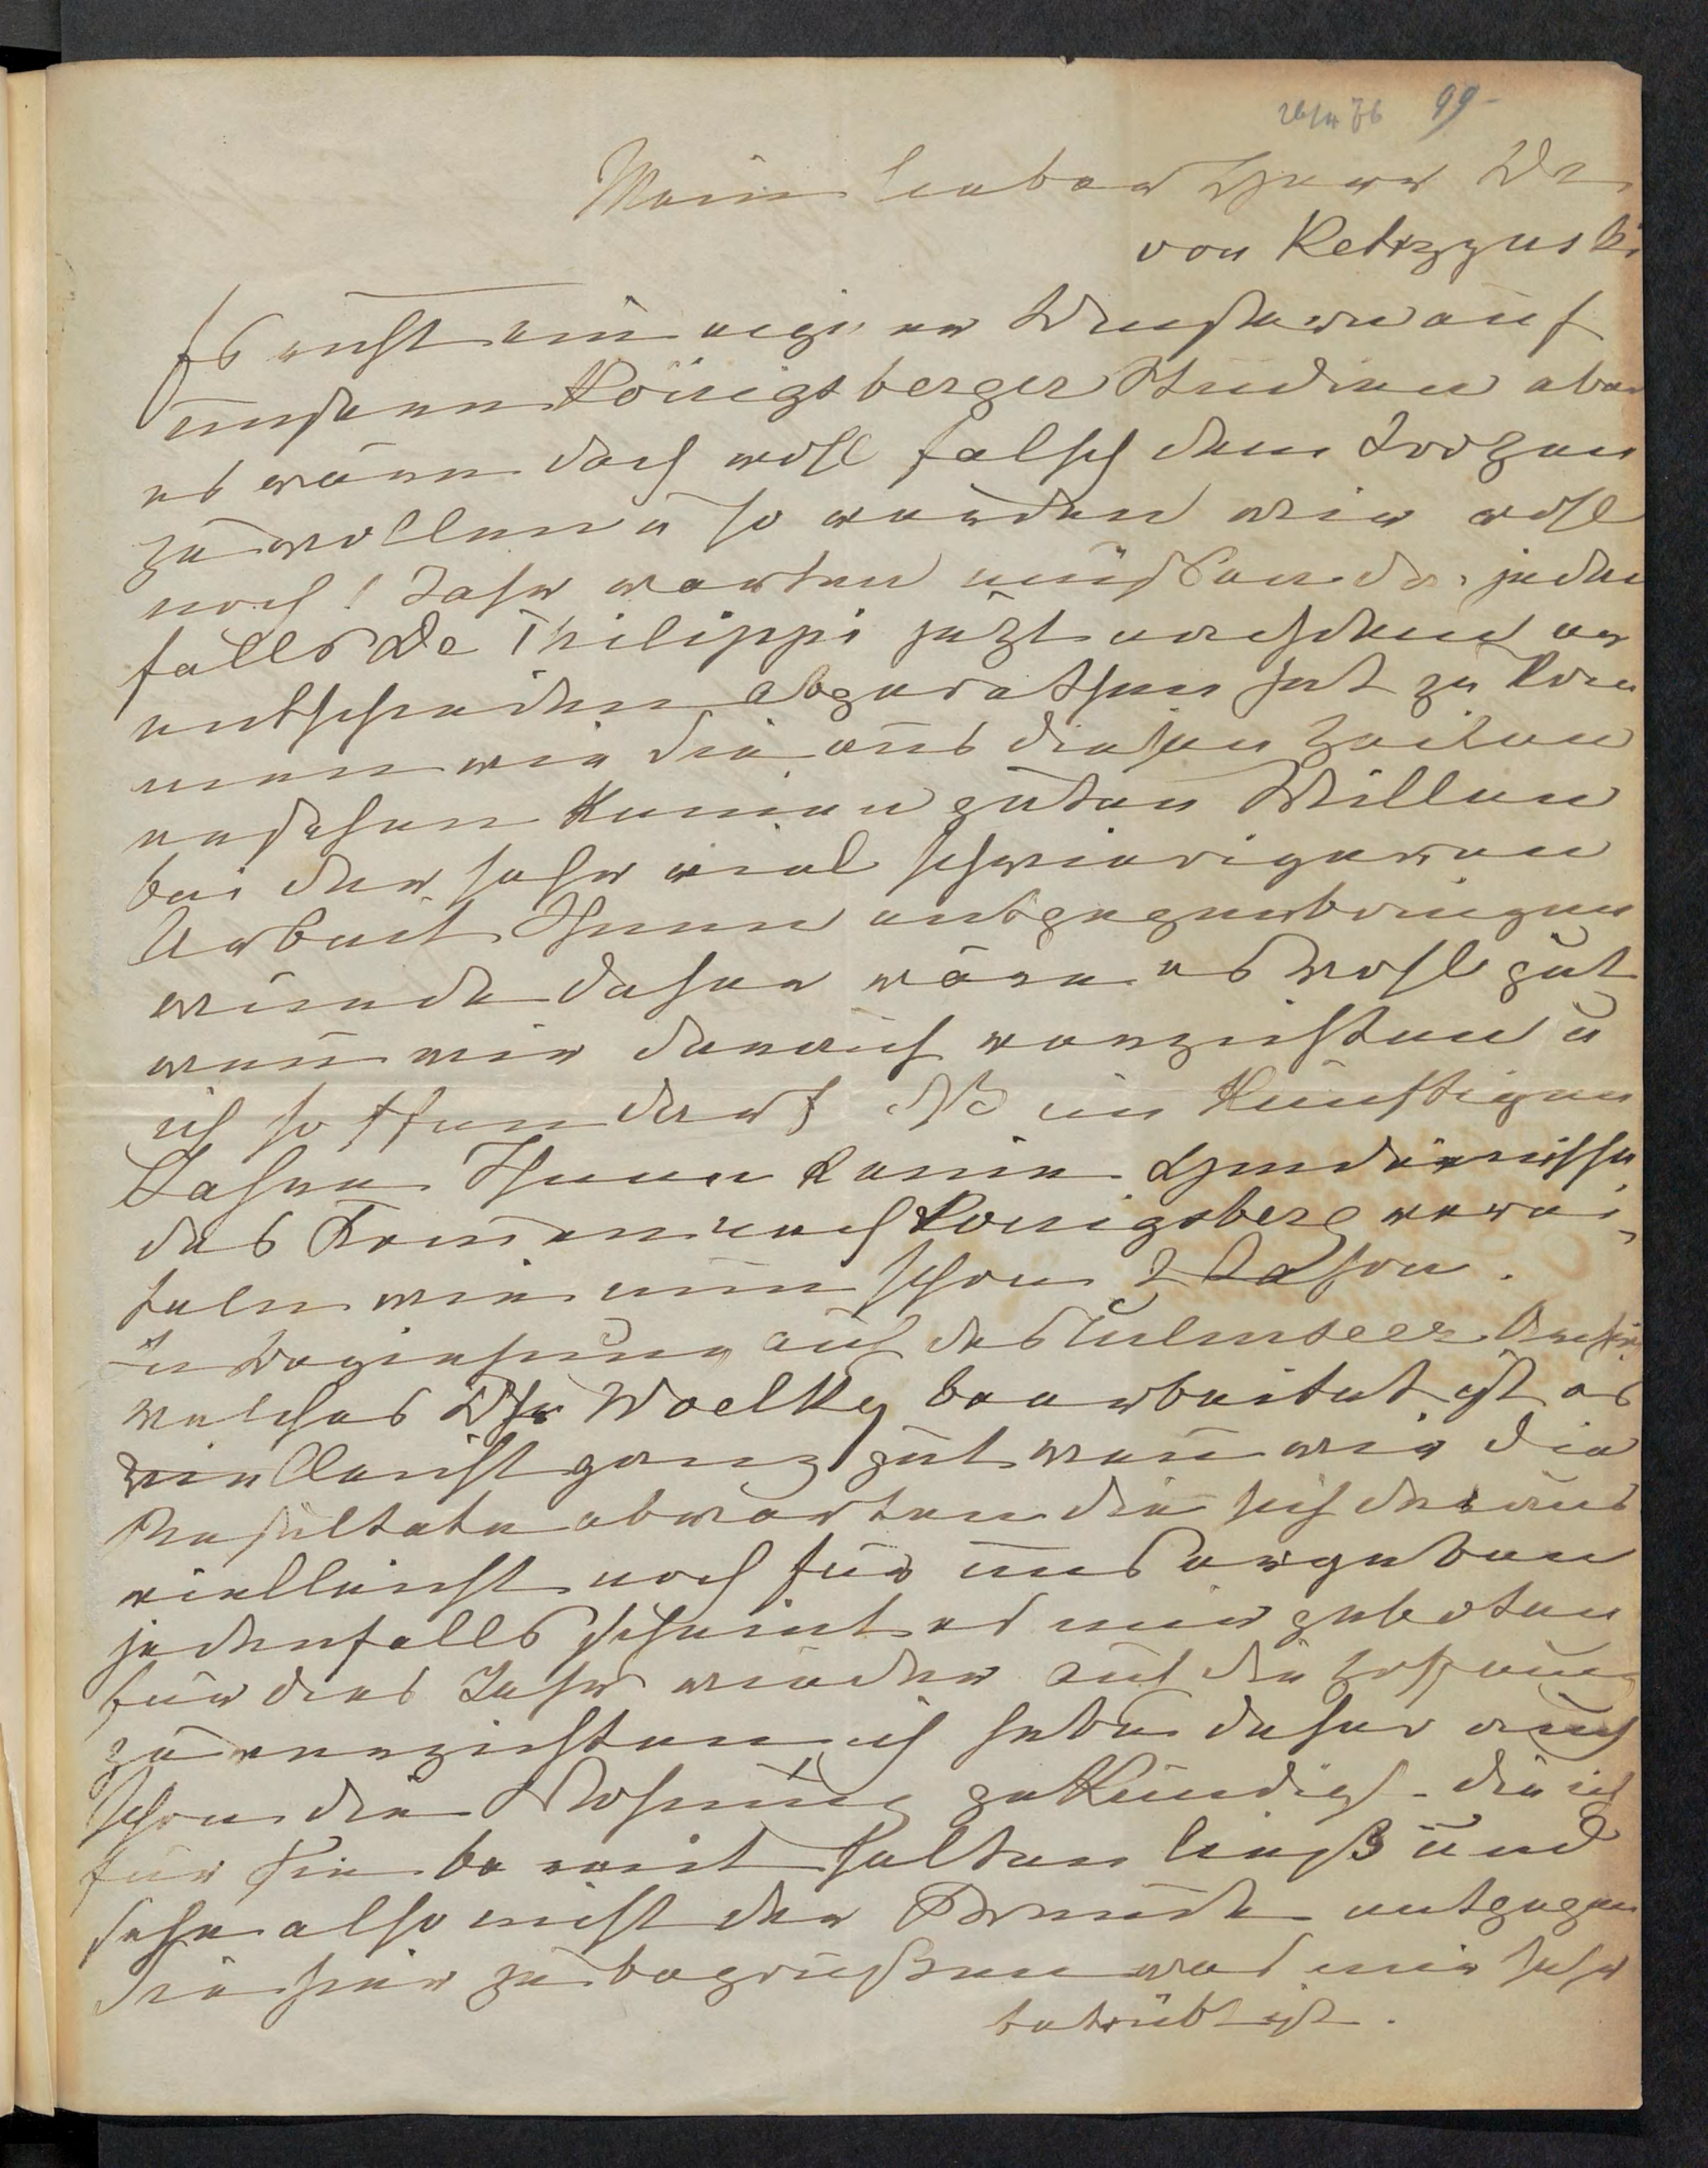 26/4 76 99
Mein lieber Herr Dr
von Ketrzynski
Es ruht ein eigener Unstern auf
unseren Königsberger Studien aber
es wäre doch wohl falsch dem Trotzen
zu wollen u so werden wir wohl
noch 1 Jahr warten müssen da jeden
falls Dr Philippi jetzt
entschieden abgerathen hat zu kom
men wie Sie aus diesen Zeilen
ersehen keinen guten Willen
bei der sehr viel schwierigeren
Arbeit Ihnen entgegenbringen
würde daher wäre es wohl gut
wenn wir darauf verzichten u
ich hoffen darf daß im künftigen
Jahre Ihnen keine Hindernisse
das Kommen nach Königsberg verei,
teln wie nun schon 2 Jahre.
In Beziehung auf das Culmseer Archiv
welches Dr Woelky bearbeitet ist es
vielleicht ganz gut wenn wir die
Resultate abwarten die sich daraus
vielleicht noch für uns ergeben
jedenfalls scheint es mir geboten
für dies Jahr wieder auf die Hoffnung
zu verzichten ich habe daher auch
schon die Wohnung gekündigt die ich
für Sie bereit halten ließ und
sehe also nicht der Freude entgegen
Sie hier zu begrüßen was mir sehr
betrübt ist.